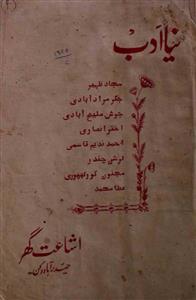 نیا ادب
سجاد ظہیر
جگر مراد آبادی
جوش ملیح آبادی
اختر انصاری
احمد ندیم قاسمی
کرشن چندر
مجنوں گورکھپوری
اشاعت گھر
حیدرآباد دکن